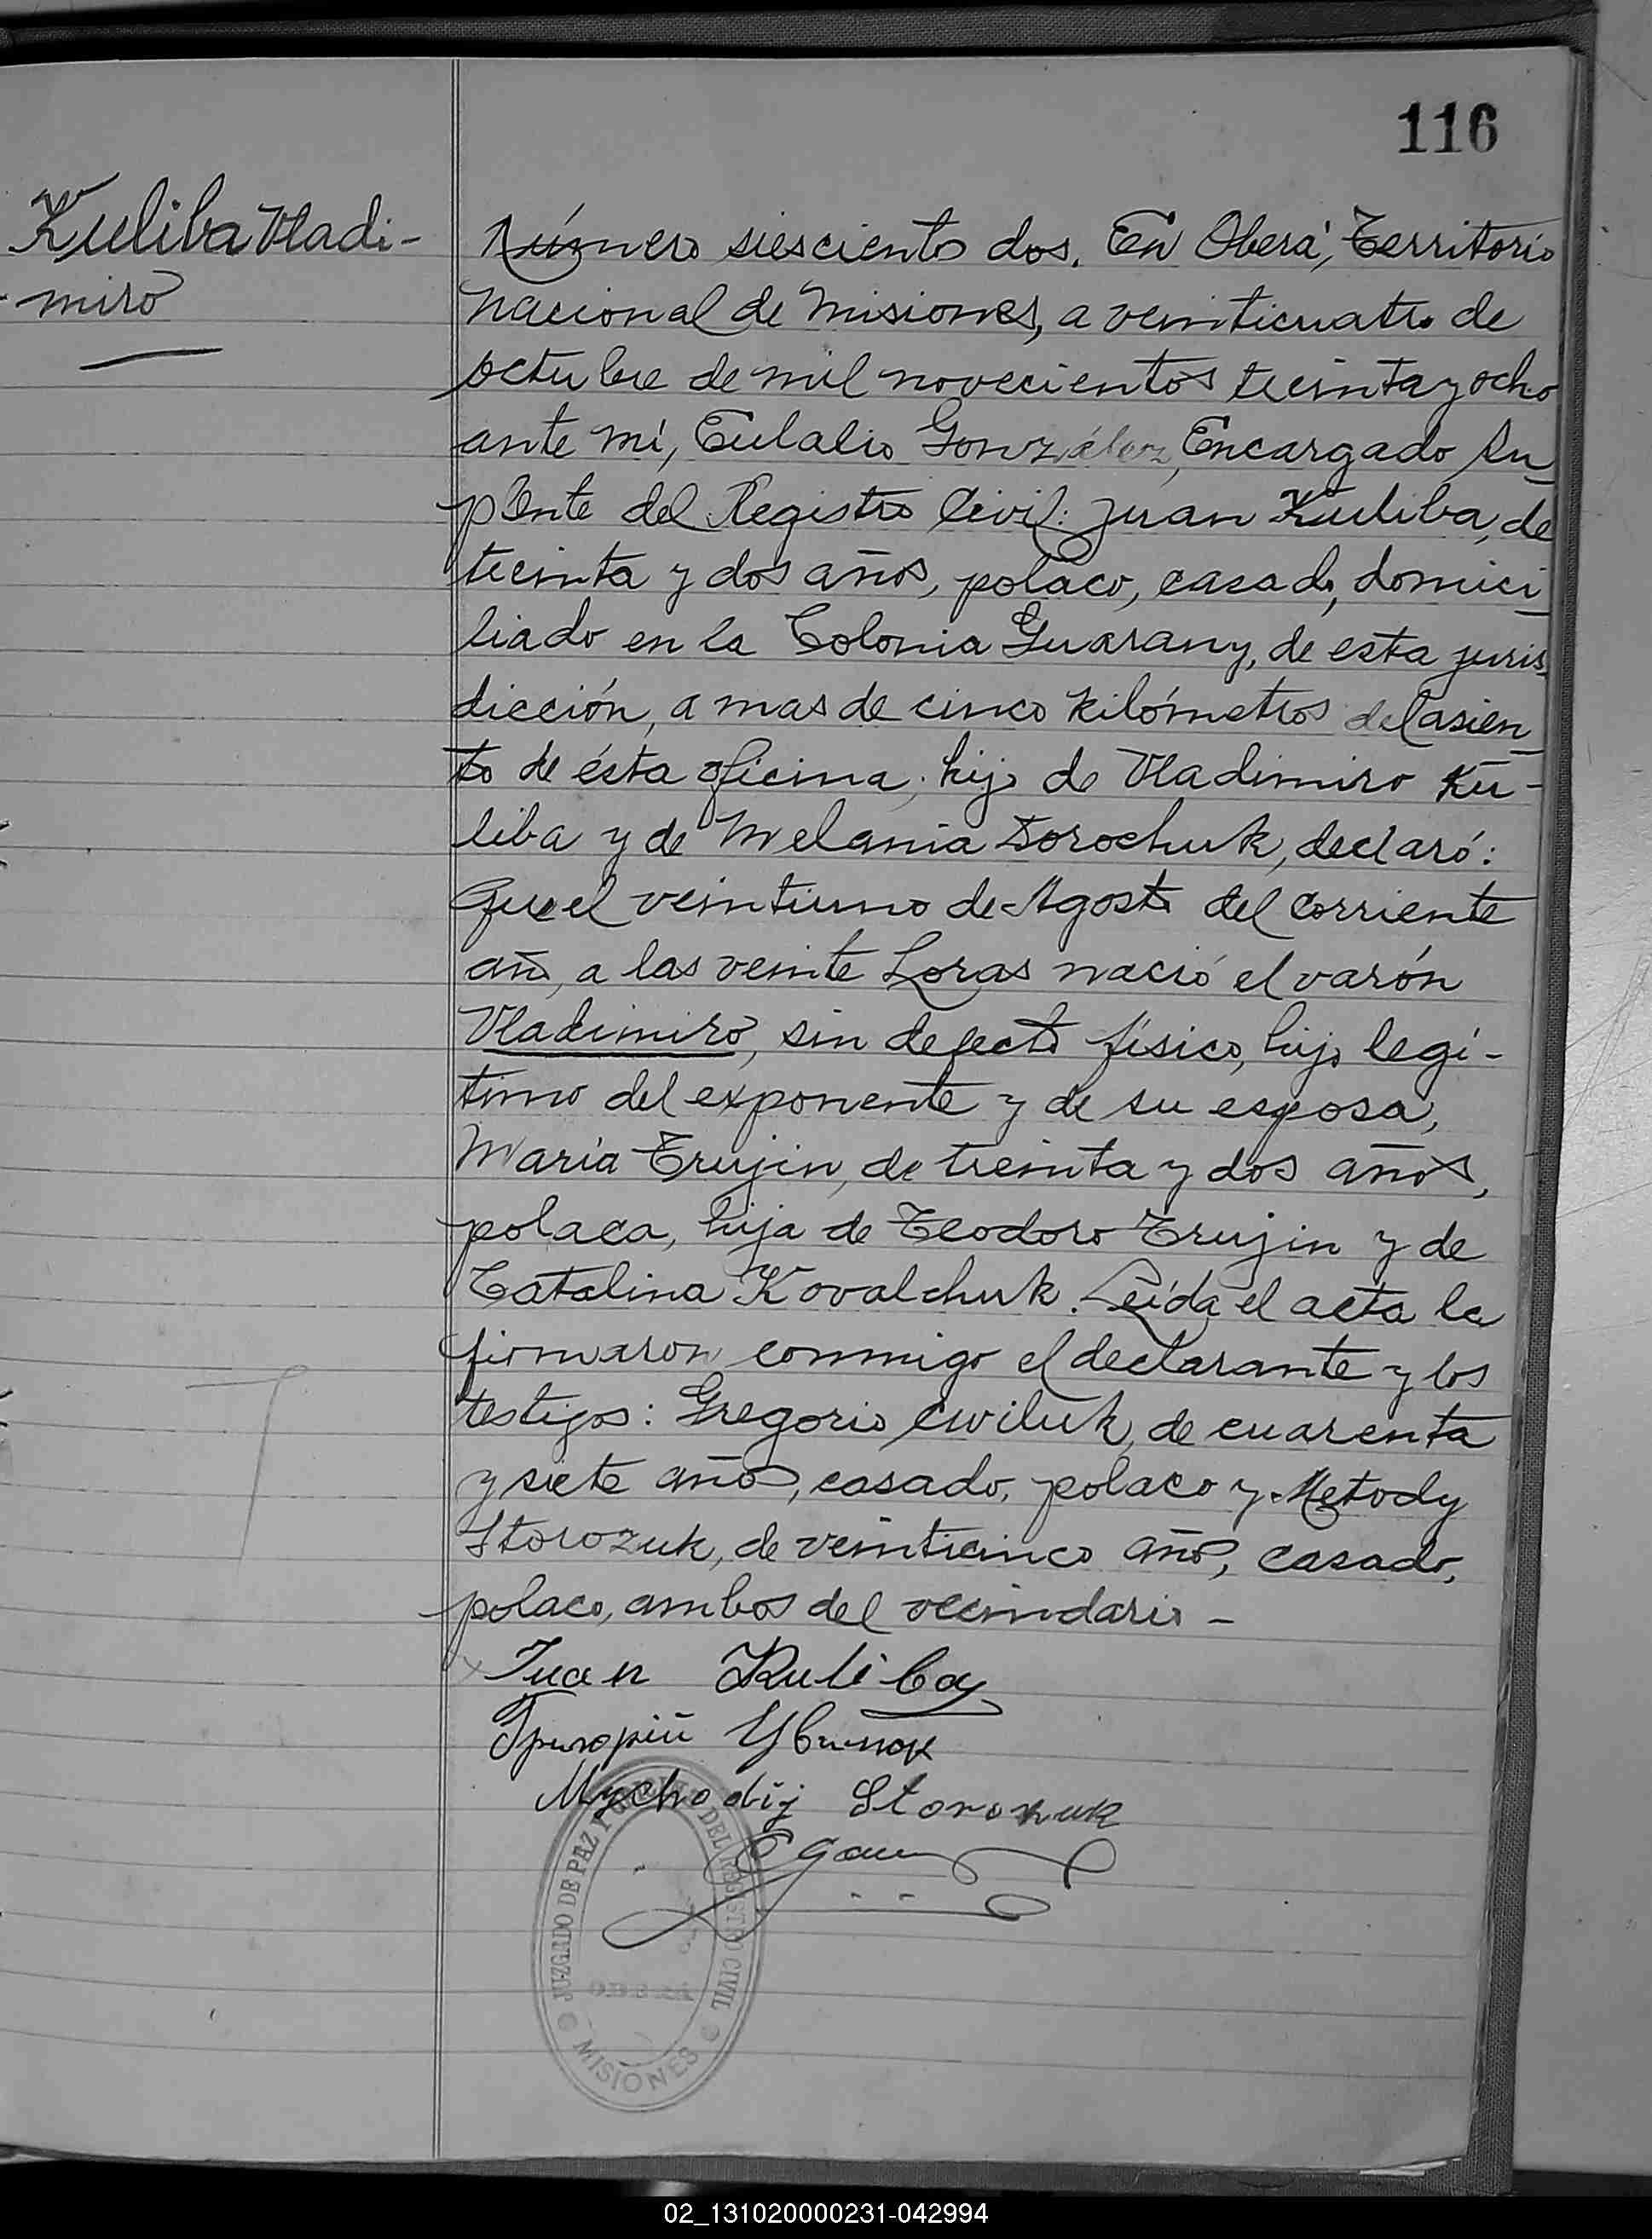 116
Kuliba Vladi-
miro
Número siesciento dos. En Oberá, Territorio
Nacional de Misiones, a veinticuatro de
octubre de mil novecientos treinta y ocho
ante mí, Eulalio González, Encargado Su_
plente del Registro Civil: Juan Kuliba, de
treinta y dos años, polaco, casado, domici_
liado en la Colonia Guarany, de esta juris_
dicción, a mas de cinco kilómetros del asien_
to de ésta oficina, hijo de Vladimiro Ku-
liba y de Melania Dorochuk, declaró:
Que el veintiuno de Agosto del corriente
año, a las veinte horas nació el varón
Vladimiro, sin defecto físico, hijo legí-
timo del exponente y de su esposa,
María Trujin, de treinta y dos años,
polaca, hija de Teodoro Trujin y de
Catalina Kovalchuk. Leída el acta la
firmaron conmigo el declarante y los
testigos: Gregorio Cwiluk, de cuarenta
y siete años, casado, polaco y Metody
Storozuk, de veinticinco años, casado,
polaco, ambos del vecindario -
Juan Kuliba
Григорій
Mychodij Storozuk
JUZGADO DE PAZ DEL REGISTRO CIVIL
OBERÁ
MISIONES
02_131020000231-042994